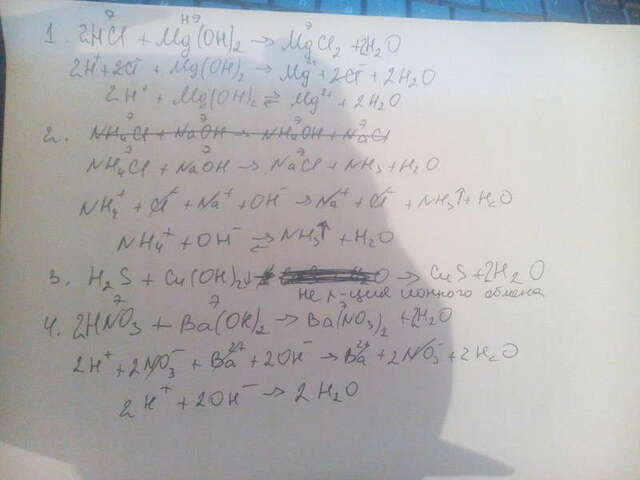 1. 2HCl + Mg(OH)2 → MgCl2 + 2H2O
2H⁺ + 2Cl⁻ + Mg(OH)2 → Mg²⁺ + 2Cl⁻ + 2H2O
2H⁺ + Mg(OH)2 ⇄ Mg²⁺ + 2H2O
2. NH4Cl + NaOH → NH4OH + NaCl
NH4Cl + NaOH → NaCl + NH3 + H2O
NH4⁺ + Cl⁻ + Na⁺ + OH⁻ → Na⁺ + Cl⁻ + NH3↑ + H2O
NH4⁺ + OH⁻ ⇄ NH3↑ + H2O
3. H2S + Cu(OH)2↓ → CuS + 2H2O
не р-ция ионного обмена
4. 2HNO3 + Ba(OH)2 → Ba(NO3)2 + 2H2O
2H⁺ + 2NO3⁻ + Ba²⁺ + 2OH⁻ → Ba²⁺ + 2NO3⁻ + 2H2O
2H⁺ + 2OH⁻ → 2H2O